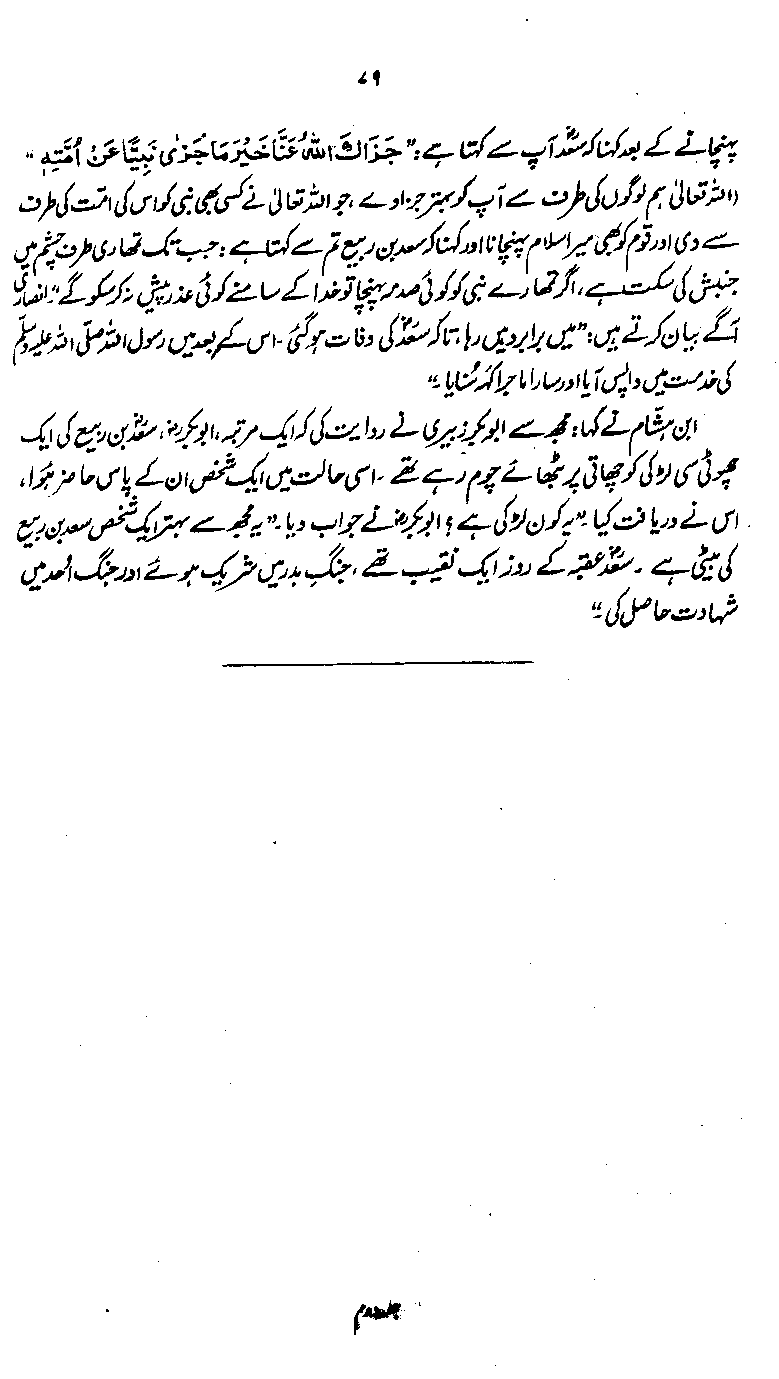 ۷۹
پہنچانے کے بعد کہنا کہ سعدؓ آپ سے کہتا ہے: ”جَزَاكَ اللهُ عَنَّا خَيْرَ مَا جُزٰى نَبِيًّا عَنْ اُمَّتِهٖ“
(اللہ تعالیٰ ہم لوگوں کی طرف سے آپ کو بہتر جزا دے، جو اللہ تعالیٰ نے کسی بھی نبی کو اس کی امت کی طرف
سے دی اور قوم کو بھی میرا سلام پہنچانا اور کہنا کہ سعد بن ربیع تم سے کہتا ہے: جب تک تمھاری طرف چشم میں
جنبش کی سکت ہے، اگر تمھارے نبی کو کوئی صدمہ پہنچا تو خدا کے سامنے کوئی عذر پیش نہ کر سکو گے“۔ انصاری
آگے بیان کرتے ہیں: ”میں برابر دیں رہا، تا کہ سعدؓ کی وفات ہو گئی۔ اس کے بعد میں رسول اللہ صلی اللہ علیہ وسلم
کی خدمت میں واپس آیا اور سارا ماجرا کہہ سُنایا۔“
ابن ہشام نے کہا: مجھ سے ابوبکر زبیری نے روایت کی کہ ایک مرتبہ، ابوبکرؓ، سعدؓ بن ربیع کی ایک
چھوٹی سی لڑکی کو چھاتی پر بٹھائے چوم رہے تھے۔ اسی حالت میں ایک شخص ان کے پاس حاضر ہُوا،
اس نے دریافت کیا۔ ”یہ کون لڑکی ہے؟ ابوبکرؓ نے جواب دیا۔ ”یہ مجھ سے بہتر ایک شخص سعد بن ربیع
کی بیٹی ہے۔ سعدؓ عقبہ کے روز ایک نقیب تھے، جنگِ بدر میں شریک ہوئے اور جنگ اُحد میں
شہادت حاصل کی۔“
جلد دوم